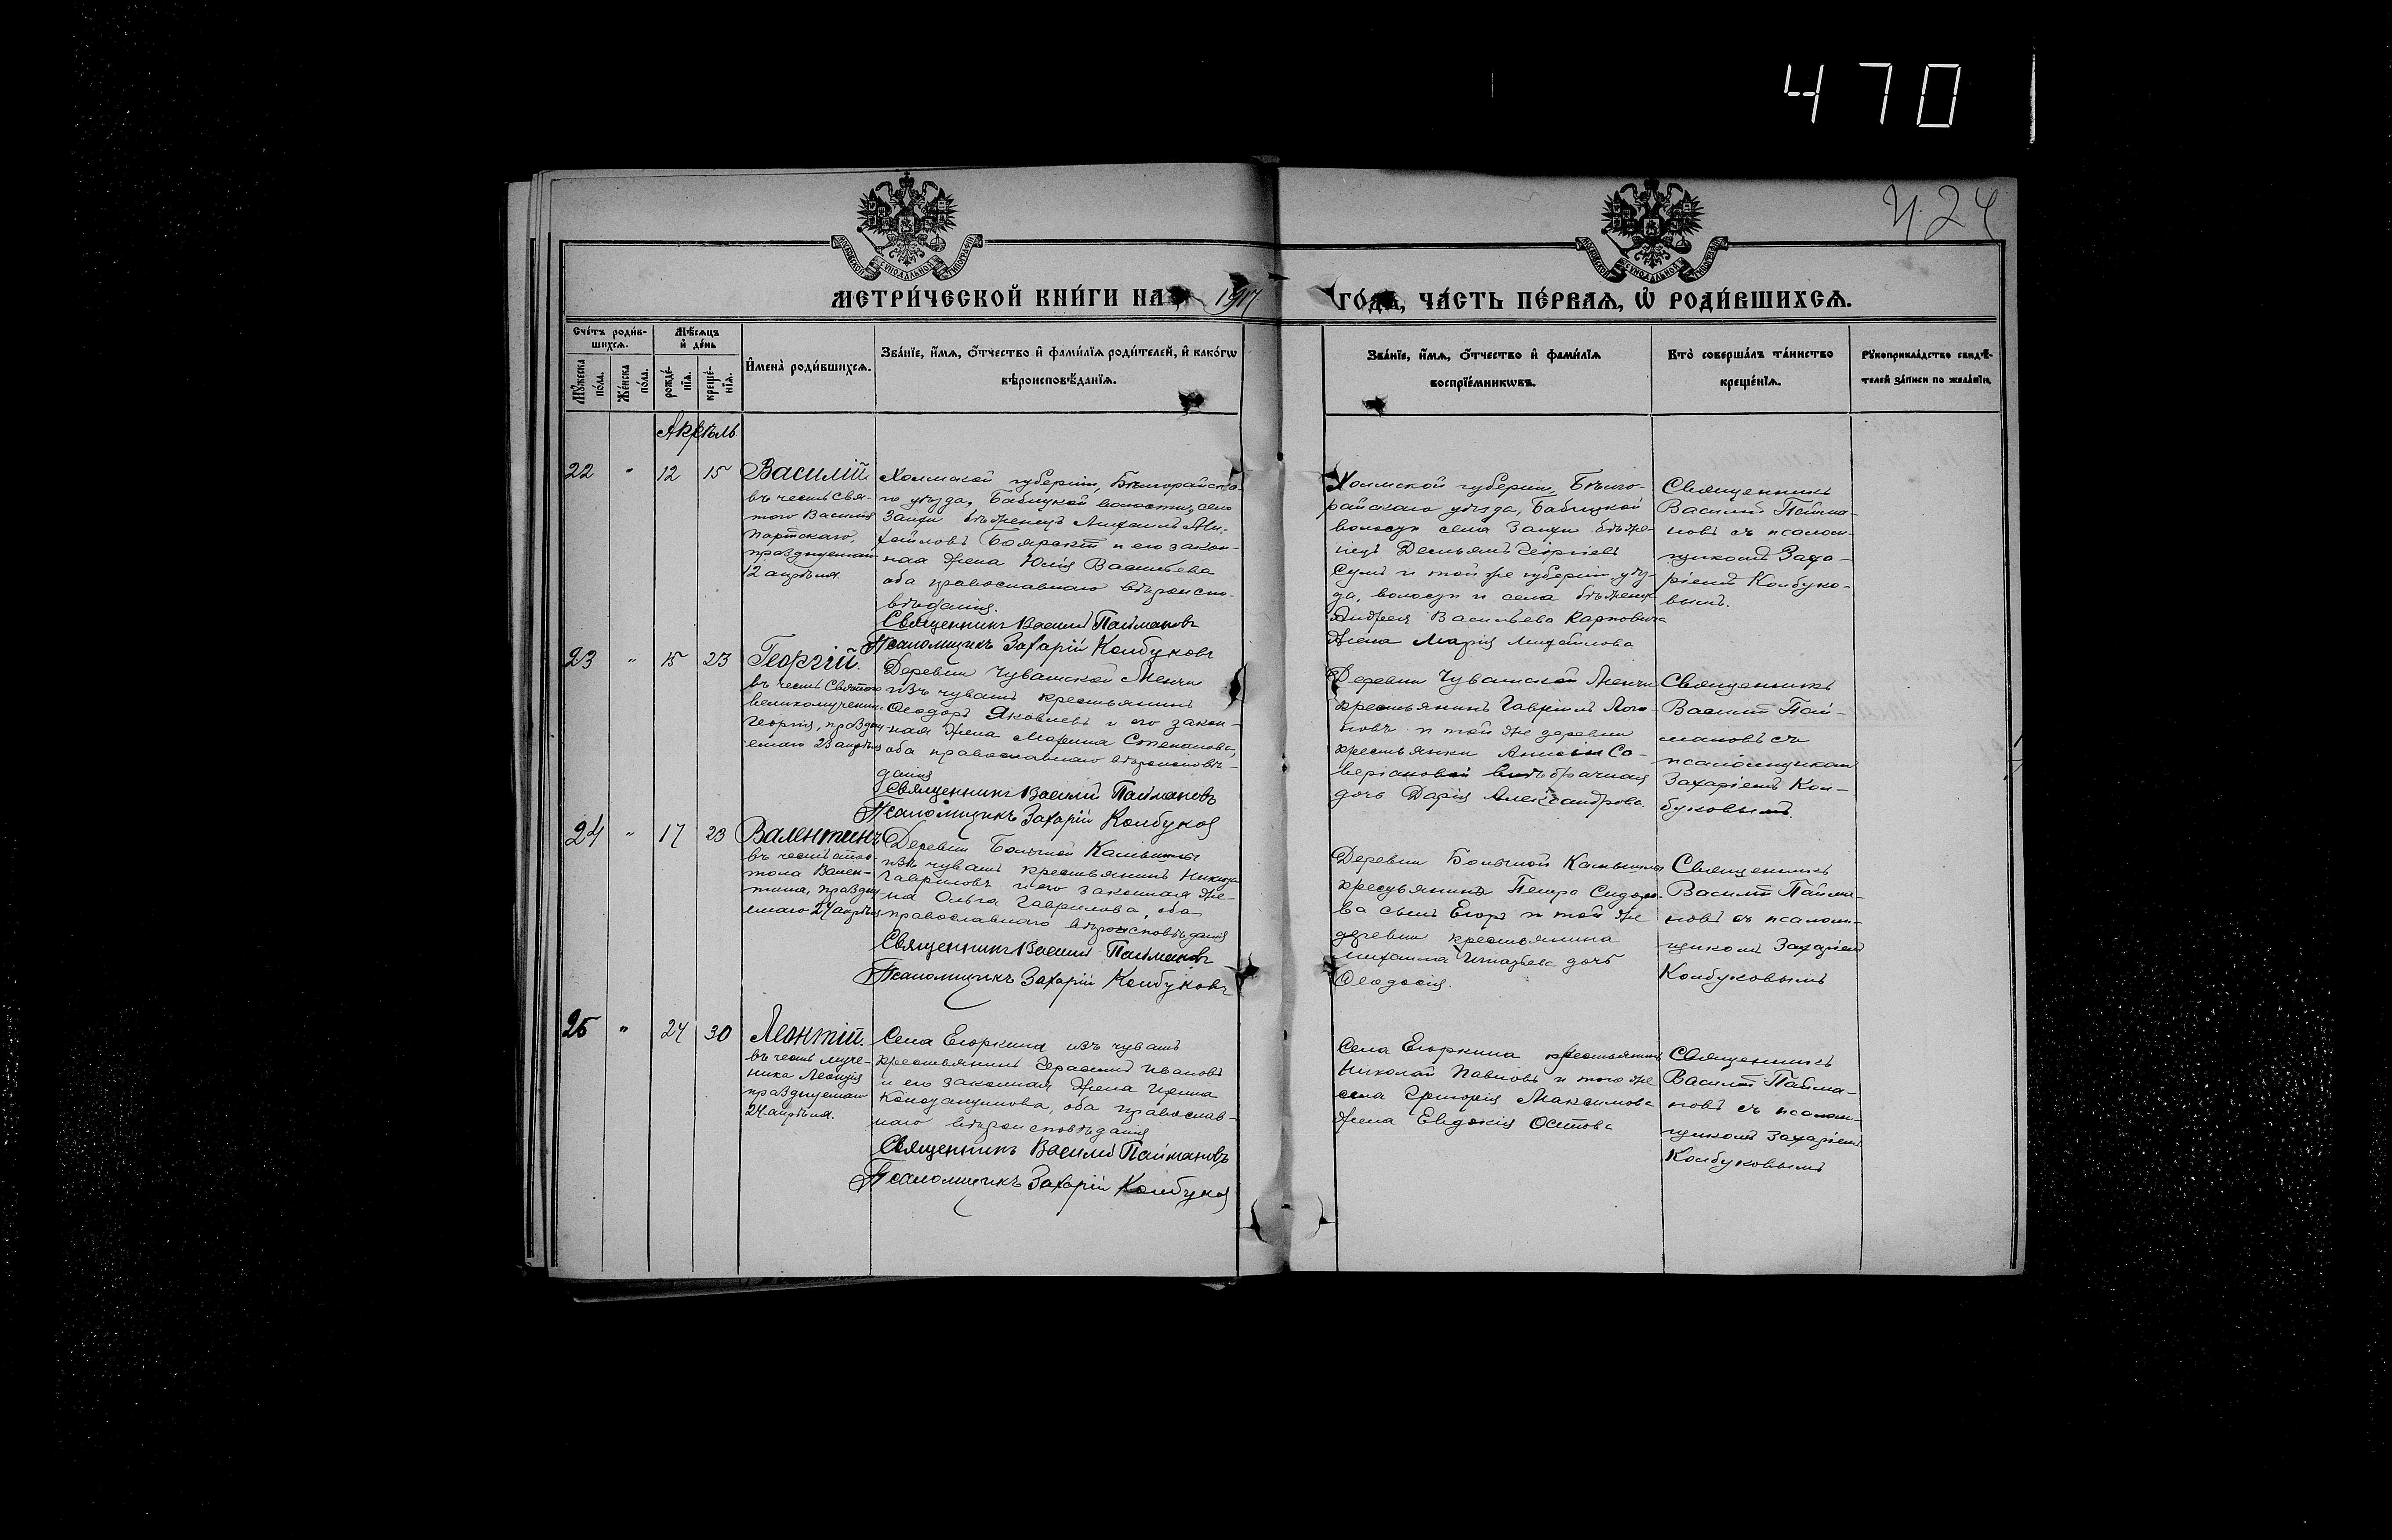 470
424
МОСКОВСКОЙ СУНОДАЛЬНОЙ ТИПОГРАФІИ
МОСКОВСКОЙ СУНОДАЛЬНОЙ ТИПОГРАФІИ
МЕТРИ́ЧЕСКОЙ КНИ́ГИ НА 1917 ГО́ДЪ, ЧА́СТЬ ПЕ́РВАѦ, Ѽ РОДИ́ВШИХСѦ.
Сче́тъ роди́в-
шихсѧ.
Мꙋ́жеска по́ла.
Же́нска по́ла.
Мѣ́сѧцъ
и҆ де́нь
рожде́-
нїѧ.
креще́-
нїѧ.
И҆мена̀ роди́вшихсѧ.
Зва́нїе, и҆́мѧ, ѻ҆́тчество и҆ фами́лїѧ роди́телей, и҆ како́гѡ
вѣроисповѣ́данїѧ.
Зва́нїе, и҆́мѧ, ѻ҆́тчество и҆ фами́лїѧ
воспрїе́мникѡвъ.
Кто̀ соверша́лъ та́инство
креще́нїѧ.
Рꙋкоприкла́дство свидѣ́-
телей за́писи по жела́нїю.
Апрѣль
22 " 12 15
Василій
въ честь Свя-
того Василія
Парійскаго,
празднуемаго
12 апрѣля.
Холмской губерніи, Бѣлгорайска-
го уѣзда, Бабицкой волости, села
Замхи бѣженецъ Михаилъ Ми-
хайловъ Боярскій и его закон-
ная жена Юлія Васильева
оба православнаго вѣроиспо-
вѣданія.
Священникъ Василій Паймановъ
Псаломщикъ Захарій Колбуковъ
Холмской губерніи, Бѣлго-
райскаго уѣзда, Бабицкой
волости села Замхи бѣже-
нецъ Демьянъ Георгіевъ
и той же губерніи, уѣз-
да, волости и села бѣженца
Андрея Васильева Карповича
жена Марія Михайлова
Священникъ
Василій Пайма-
новъ съ псалом-
щикомъ Заха-
ріемъ Колбуко-
вымъ.
23 " 15 23
Георгій.
въ честь Святого
великомученика
Георгія, праздну-
емаго 23 апрѣля
Деревни Чувашской Менчи
изъ чувашъ крестьянинъ
Ѳеодоръ Яковлевъ и его закон-
ная жена Марина Степанова,
оба православнаго вѣроисповѣ-
данія
Священникъ Василій Паймановъ
Псаломщикъ Захарій Колбуковъ
Деревни Чувашской Менчи
крестьянинъ Гавріилъ
и той же деревни
крестьянки
внѣбрачная
дочь Дарія Александрова.
Священникъ
Василій Пай-
мановъ съ
псаломщикомъ
Захаріемъ Кол-
буковымъ.
24 " 17 23
Валентинъ
въ честь
Вален-
тина, праздну-
емаго 24 апрѣля
Деревни Большой Камышлы
изъ чувашъ крестьянинъ
Гавриловъ и его законная же-
на Ольга Гаврилова, оба
православнаго вѣроисповѣданія
Священникъ Василій Паймановъ
Псаломщикъ Захарій Колбуковъ
Деревни Большой Камышлы
крестьянина Петра Сидоро-
ва сынъ Егоръ и той же
деревни крестьянина
Михаила Игнатьева дочь
Ѳеодосія.
Священникъ
Василій Пайма-
новъ съ псалом-
щикомъ Захаріемъ
Колбуковымъ
25 " 24 30
Леонтій.
въ честь муче-
ника Леонтія
празднуемаго
24 апрѣля.
Села Егоркина изъ чувашъ
крестьянинъ Герасимъ Ивановъ
и его законная жена Ирина
Константинова, оба православ-
наго вѣроисповѣданія
Священникъ Василій Паймановъ
Псаломщикъ Захарій Колбуковъ
Села Егоркина крестьянинъ
Николай Павловъ и того же
села Григорія Максимова
жена Евдокія Осипова
Священникъ
Василій Пайма-
новъ съ псалом-
щикомъ Захаріемъ
Колбуковымъ